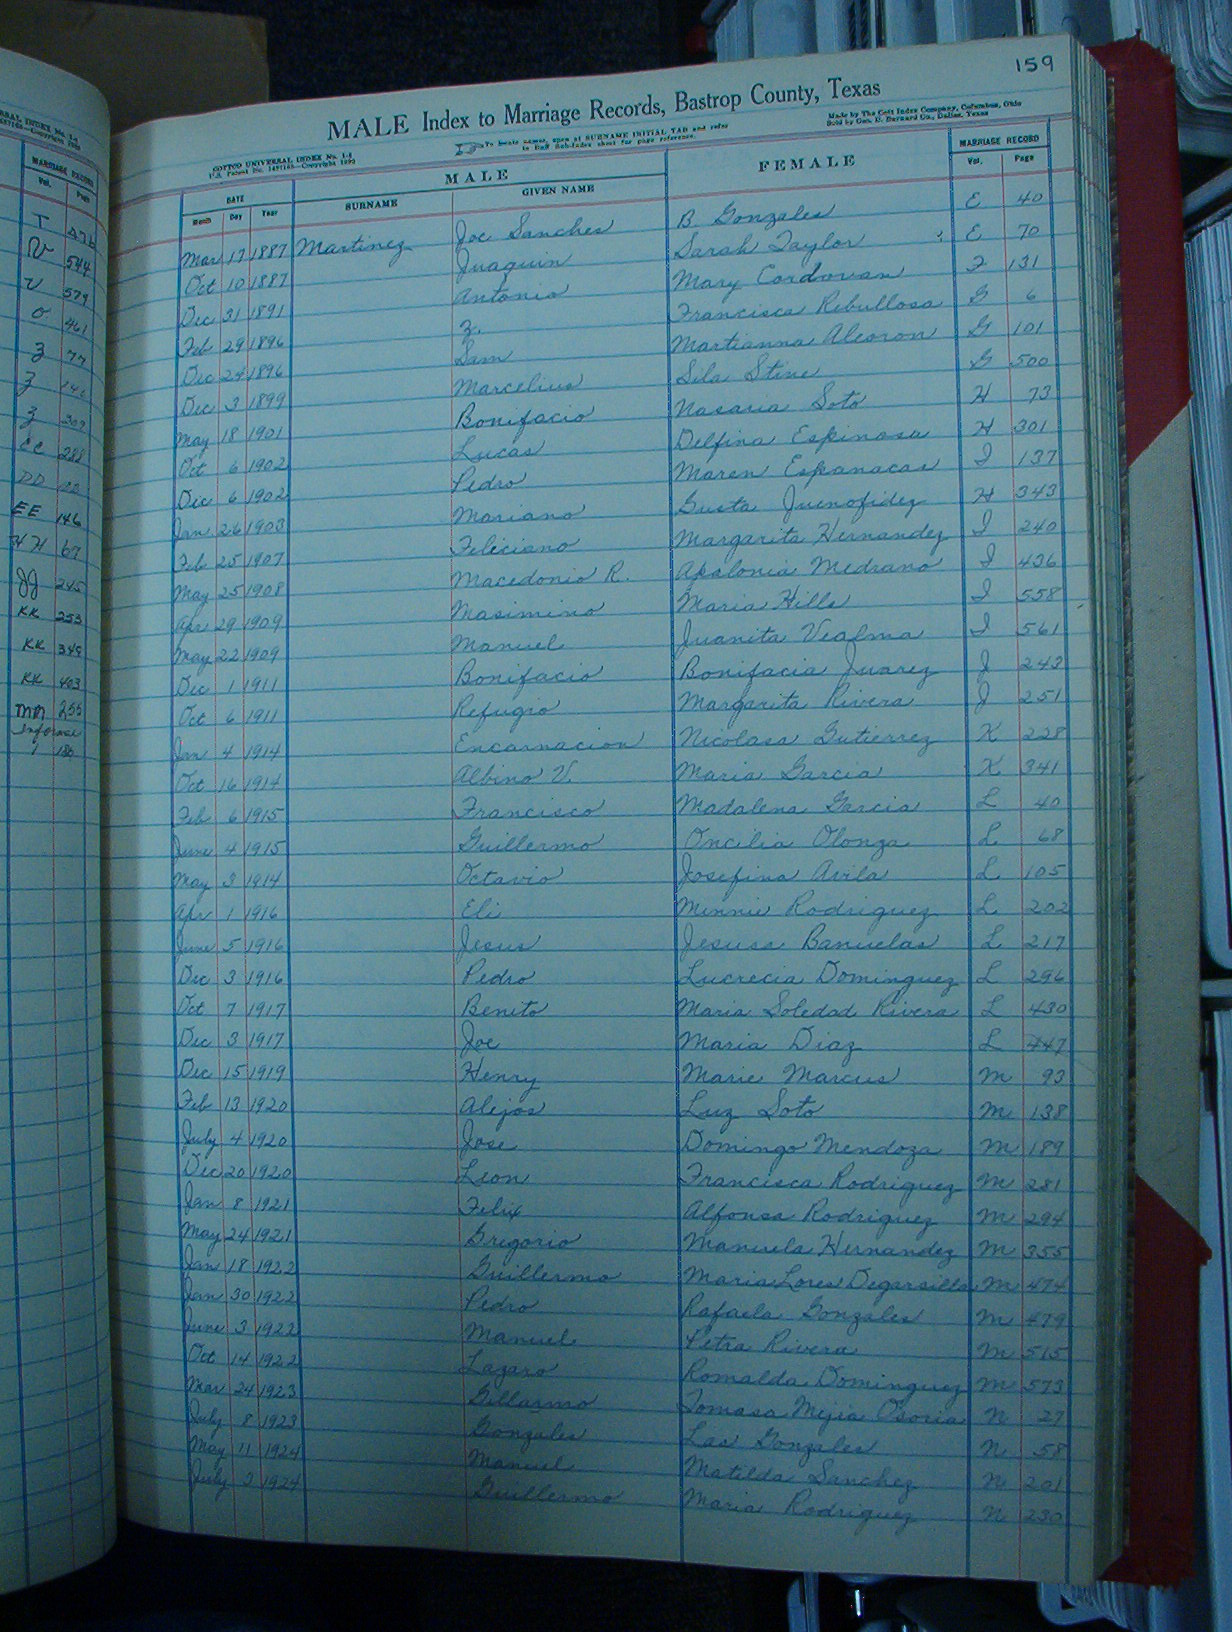 MARRIAGE RECORD
Vol. Page
T
W 544
V 579
O 461
Z 77
Z
Z 307
CC 288
DD
EE 146
HH 67
JJ 245
KK 253
KK 349
KK 403
MM 255
Informal
1 180
159
MALE Index to Marriage Records, Bastrop County, Texas
COTTCO UNIVERSAL INDEX No. 1-I
To locate names, open at SURNAME INITIAL TAB and refer
to Buff Sub-Index sheet for page reference.
Made by The Cott Index Company, Columbus, Ohio
Sold by Geo. D. Barnard Co., Dallas, Texas
DATE MALE FEMALE MARRIAGE RECORD
Month Day Year SURNAME GIVEN NAME Vol. Page
Mar 17 1887 Martinez Joe Sanches B. Gonzales E 40
Oct 10 1887 Juaquin Sarah Taylor E 70
Dec 31 1891 Antonio Mary Cordovan F 131
Feb 29 1896 Z. Francisca Rebullosa G 6
Dec 24 1896 Sam Martianna Alcoron G 101
Dec 3 1899 Marcelius Sila Stine G 500
May 18 1901 Bonifacio Nasaria Soto H 73
Oct 6 1902 Lucas Delfina Espinasa H 301
Dec 6 1902 Pedro Maren Espanacas I 137
Jan 26 1903 Mariano Gusta Juenofidez H 343
Feb 25 1907 Feliciano Margarita Hernandez I 240
May 25 1908 Macedonio R. Apalonia Medrano I 436
Apr 29 1909 Masimino Maria Hills I 558
May 22 1909 Manuel Juanita Vealma I 561
Dec 1 1911 Bonifacio Bonifacia Juarez J 243
Oct 6 1911 Refugio Margarita Rivera J 251
Jan 4 1914 Encarnacion Nicolasa Gutierrez K 228
Oct 16 1914 Albino V. Maria Garcia K 341
Feb 6 1915 Francisco Madalena Garcia L 40
June 4 1915 Guillermo Oncilia Olonza L 68
May 3 1914 Octavio Josefina Avila L 105
Apr 1 1916 Eli Minnie Rodriguez L 202
June 5 1916 Jesus Jesusa Banuelas L 217
Dec 3 1916 Pedro Lucrecia Dominguez L 296
Oct 7 1917 Benito Maria Soledad Rivera L 430
Dec 3 1917 Joe Maria Diaz L 447
Dec 15 1919 Henry Marie Marcus M 93
Feb 13 1920 Alejos Luz Soto M 138
July 4 1920 Jose Domingo Mendoza M 189
Dec 20 1920 Leon Francisca Rodriguez M 281
Jan 8 1921 Felix Alfonsa Rodriguez M 294
May 24 1921 Gregorio Manuela Hernandez M 355
Jan 18 1922 Guillermo Maria Lores Degarsilla M 474
Jan 30 1922 Pedro Rafaela Gonzales M 479
June 3 1922 Manuel Petra Rivera M 515
Oct 14 1922 Lazaro Romalda Dominguez M 573
Mar 24 1923 Gillarmo Tomasa Mijia Osoria N 27
July 8 1923 Gonzales Las Gonzales N 58
May 11 1924 Manuel Matilda Sanchez N 201
July 3 1924 Guillermo Maria Rodriguez N 230